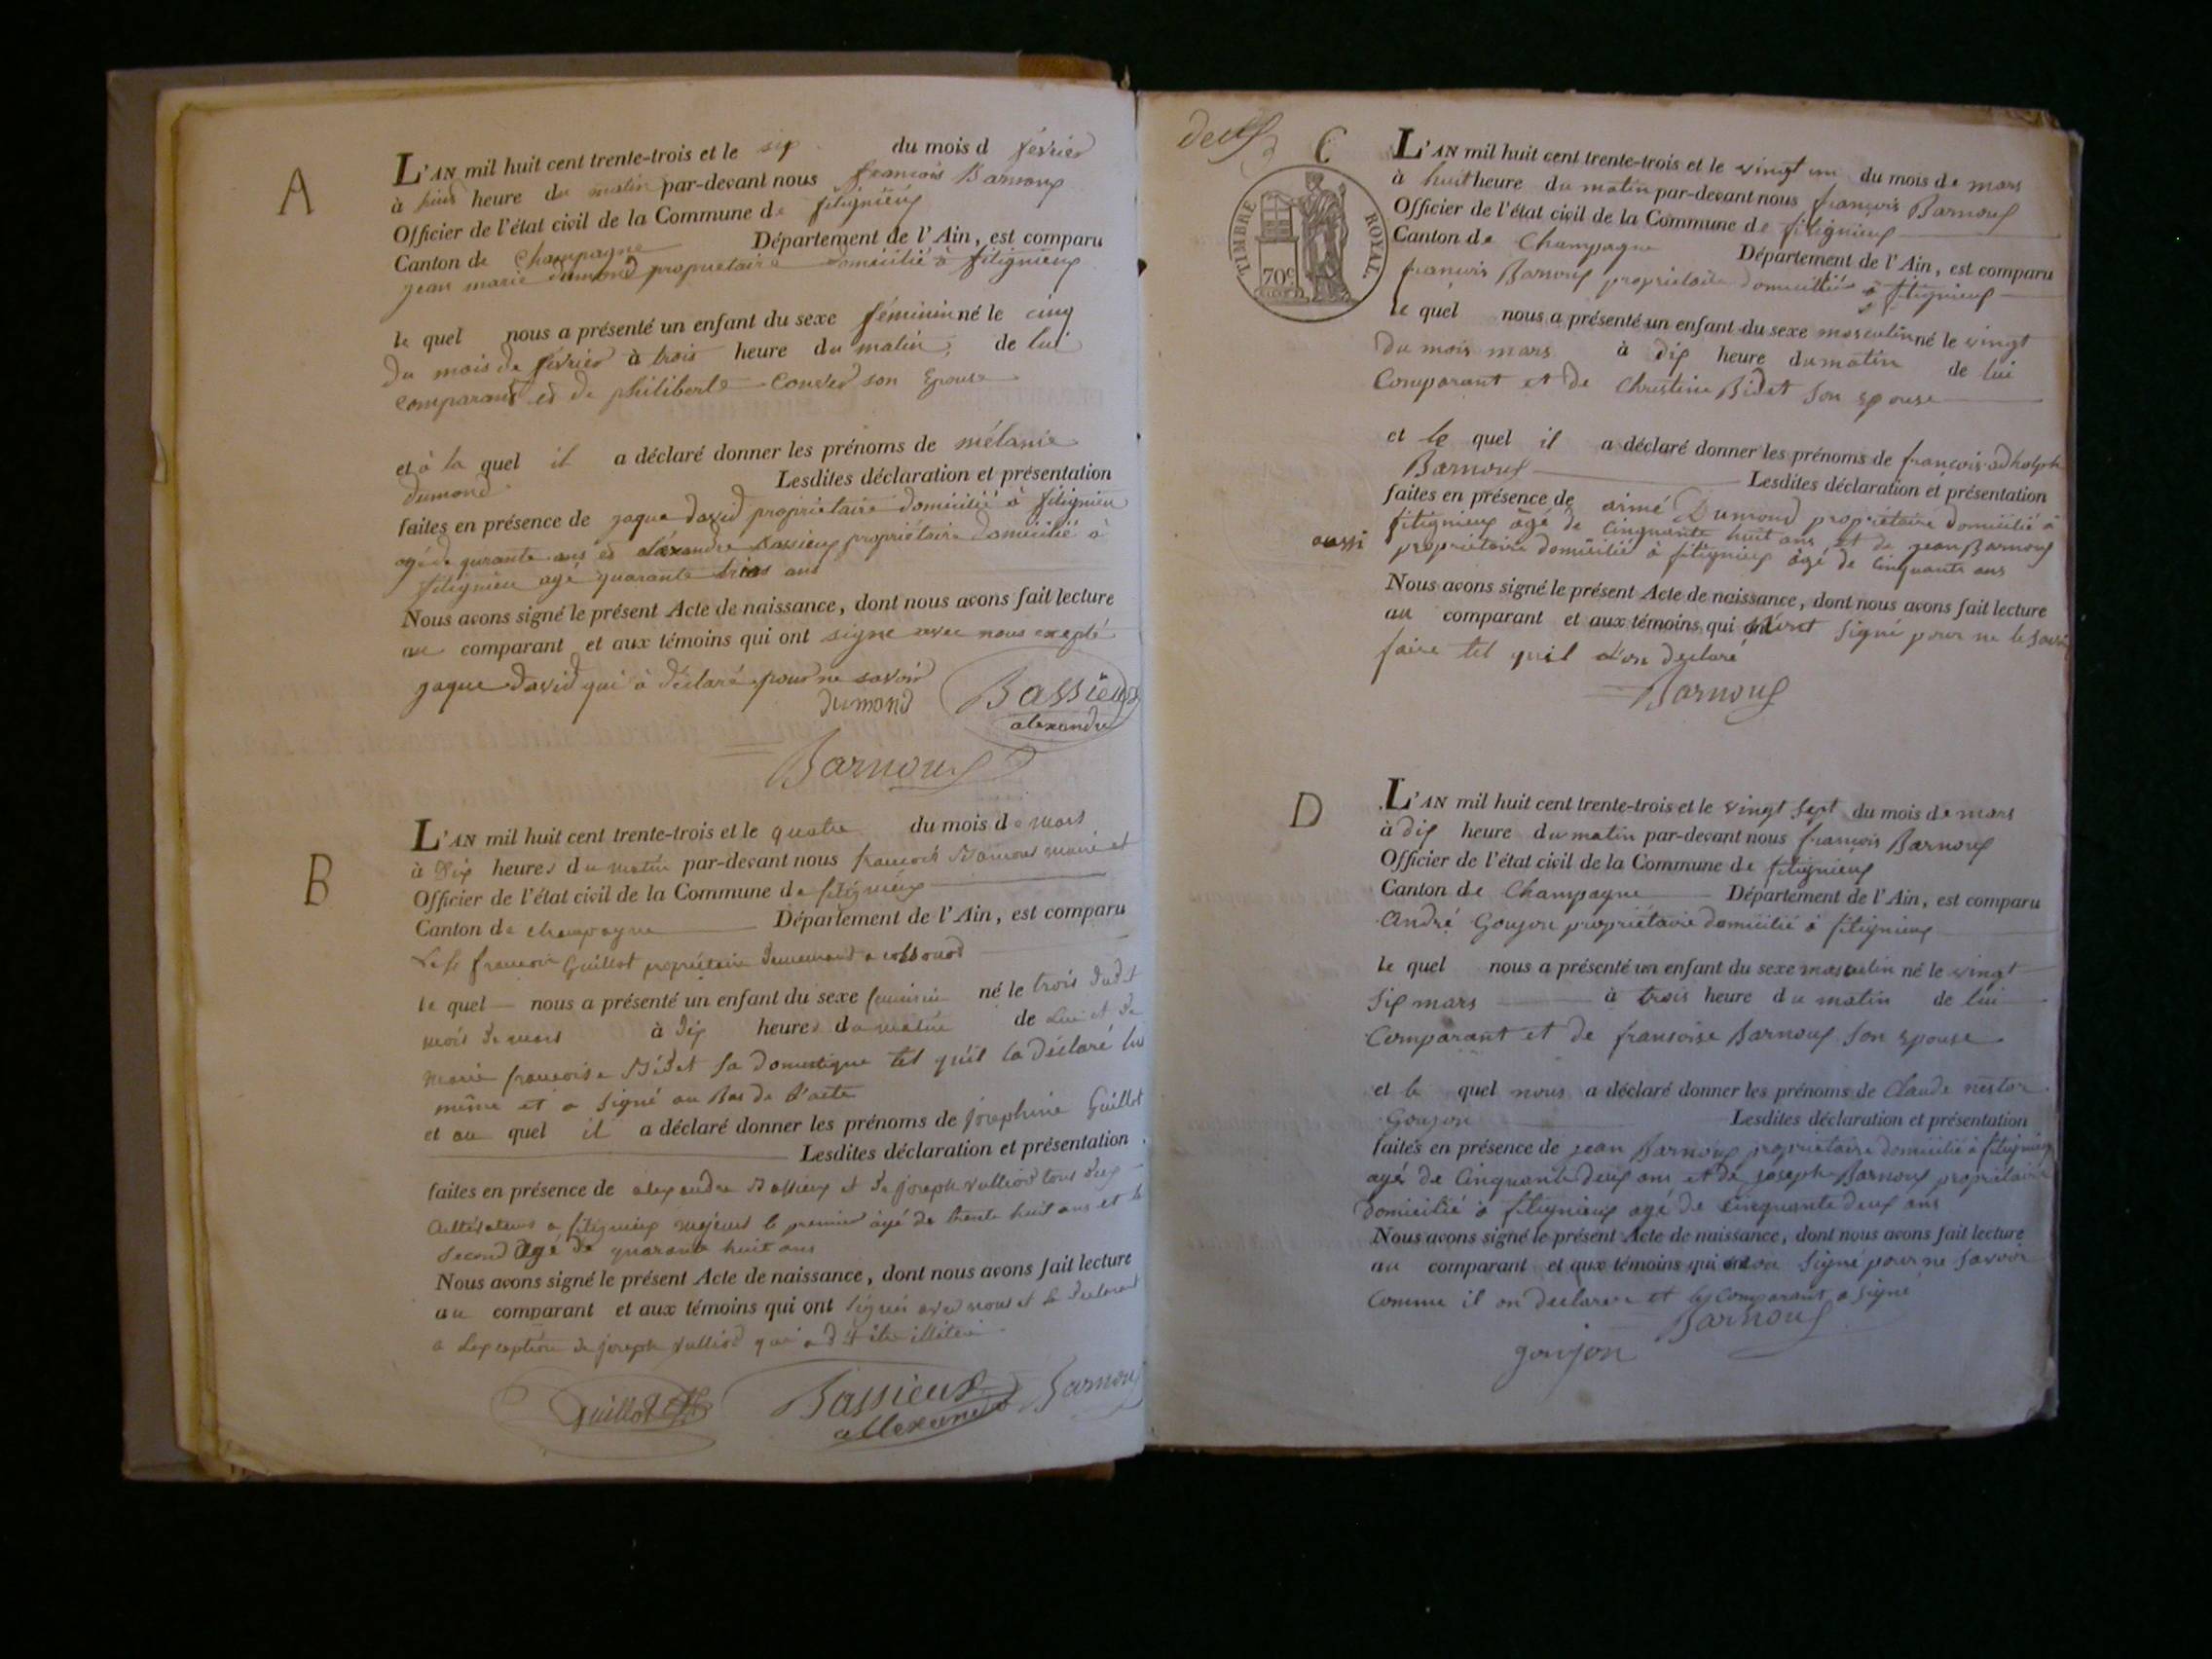 A
L'AN mil huit cent trente-trois et le six du mois d février
à huit heure du matin par-devant nous francois Barnoux
Officier de l'état civil de la Commune de fitignieux
Canton de Champagne Département de l'Ain, est comparu
jean marie dumond propriétaire domicilié à fitignieux
le quel nous a présenté un enfant du sexe féminin né le cinq
du mois de février à trois heure du matin, de lui
comparant et de philiberte son Epouse
et à la quel il a déclaré donner les prénoms de mélanie
dumond Lesdites déclaration et présentation
faites en présence de jaque david propriétaire domicilié à fitignieu
agé de qurante ans et aléxandre Bassieux propriétaire domicilié à
fitignieu agé quarante trois ans
Nous avons signé le présent Acte de naissance, dont nous avons fait lecture
au comparant et aux témoins qui ont signe avec nous exepté
jaque david qui à déclaré pour ne savoir
dumond Bassieux
alexandre
Barnoux
B
L'AN mil huit cent trente-trois et le quatre du mois de mars
à Dix heures du matin par-devant nous francois Barnoux maire et
Officier de l'état civil de la Commune de fitignieux
Canton de champagne Département de l'Ain, est comparu
Le sr francois Guillot propriétaire demeurant a
le quel nous a présenté un enfant du sexe feminin né le trois dudit
mois de mars à dix heures du matin de Lui et de
marie francoise Bidet sa domestique tel qu'il la déclaré lui
même et a signé au Bas de l'acte
et au quel il a déclaré donner les prénoms de josephine Guillot
Lesdites déclaration et présentation
faites en présence de alexandre Bassieux et de joseph vulliod tous deux
Cultivateurs a fitignieux majeurs le premier âgé de trente huit ans et le
second âgé de quarante huit ans
Nous avons signé le présent Acte de naissance, dont nous avons fait lecture
au comparant et aux témoins qui ont signés avec nous et le declarant
a Lexception de joseph vulliod qui a dit être illitéré
Guillot Bassieux Barnoux
allexandre
deux
C
TIMBRE ROYAL
70c
L'AN mil huit cent trente-trois et le vingt un du mois de mars
à huit heure du matin par-devant nous françois Barnoux
Officier de l'état civil de la Commune de fitignieux
Canton de Champagne Département de l'Ain, est comparu
francois Barnoux propriétaire domicillié à fitignieux
le quel nous a présenté un enfant du sexe masculin né le vingt
du mois mars à dix heure du matin de lui
Comparant et de Christine Bidet son epouse
et le quel il a déclaré donner les prénoms de francois adholph
Barnoux Lesdites déclaration et présentation
faites en présence de aimé Dumond propriétaire domicilié à
fitignieux âgé de cinquante huit ans et de jean Barnoux
aussi propriétaire domicilié à fitignieux âgé de cinquante ans
Nous avons signé le présent Acte de naissance, dont nous avons fait lecture
au comparant et aux témoins qui signé pour ne le savoir
faire tel quil l'on declaré
Barnoux
D
L'AN mil huit cent trente-trois et le vingt sept du mois de mars
à dix heure du matin par-devant nous francois Barnoux
Officier de l'état civil de la Commune de fitignieux
Canton de Champagne Département de l'Ain, est comparu
André Goujon propriétaire domicilié à fitignieux
le quel nous a présenté un enfant du sexe masculin né le vingt
six mars à trois heure du matin de lui
Comparant et de fransoise Barnoux son epouse
et le quel nous a déclaré donner les prénoms de Claude nestor
Goujon Lesdites déclaration et présentation
faites en présence de jean Barnoux propriétaire domicilié à fitignieux
agés de Cinquante deux ans et de joseph Barnoux propriétaire
domicilié à fitignieux agé de cinquante deux ans
Nous avons signé le présent Acte de naissance, dont nous avons fait lecture
au comparant et aux témoins qui signé pour ne savoir
Comme il on declarer et le comparant a signé
Barnoux
goujon